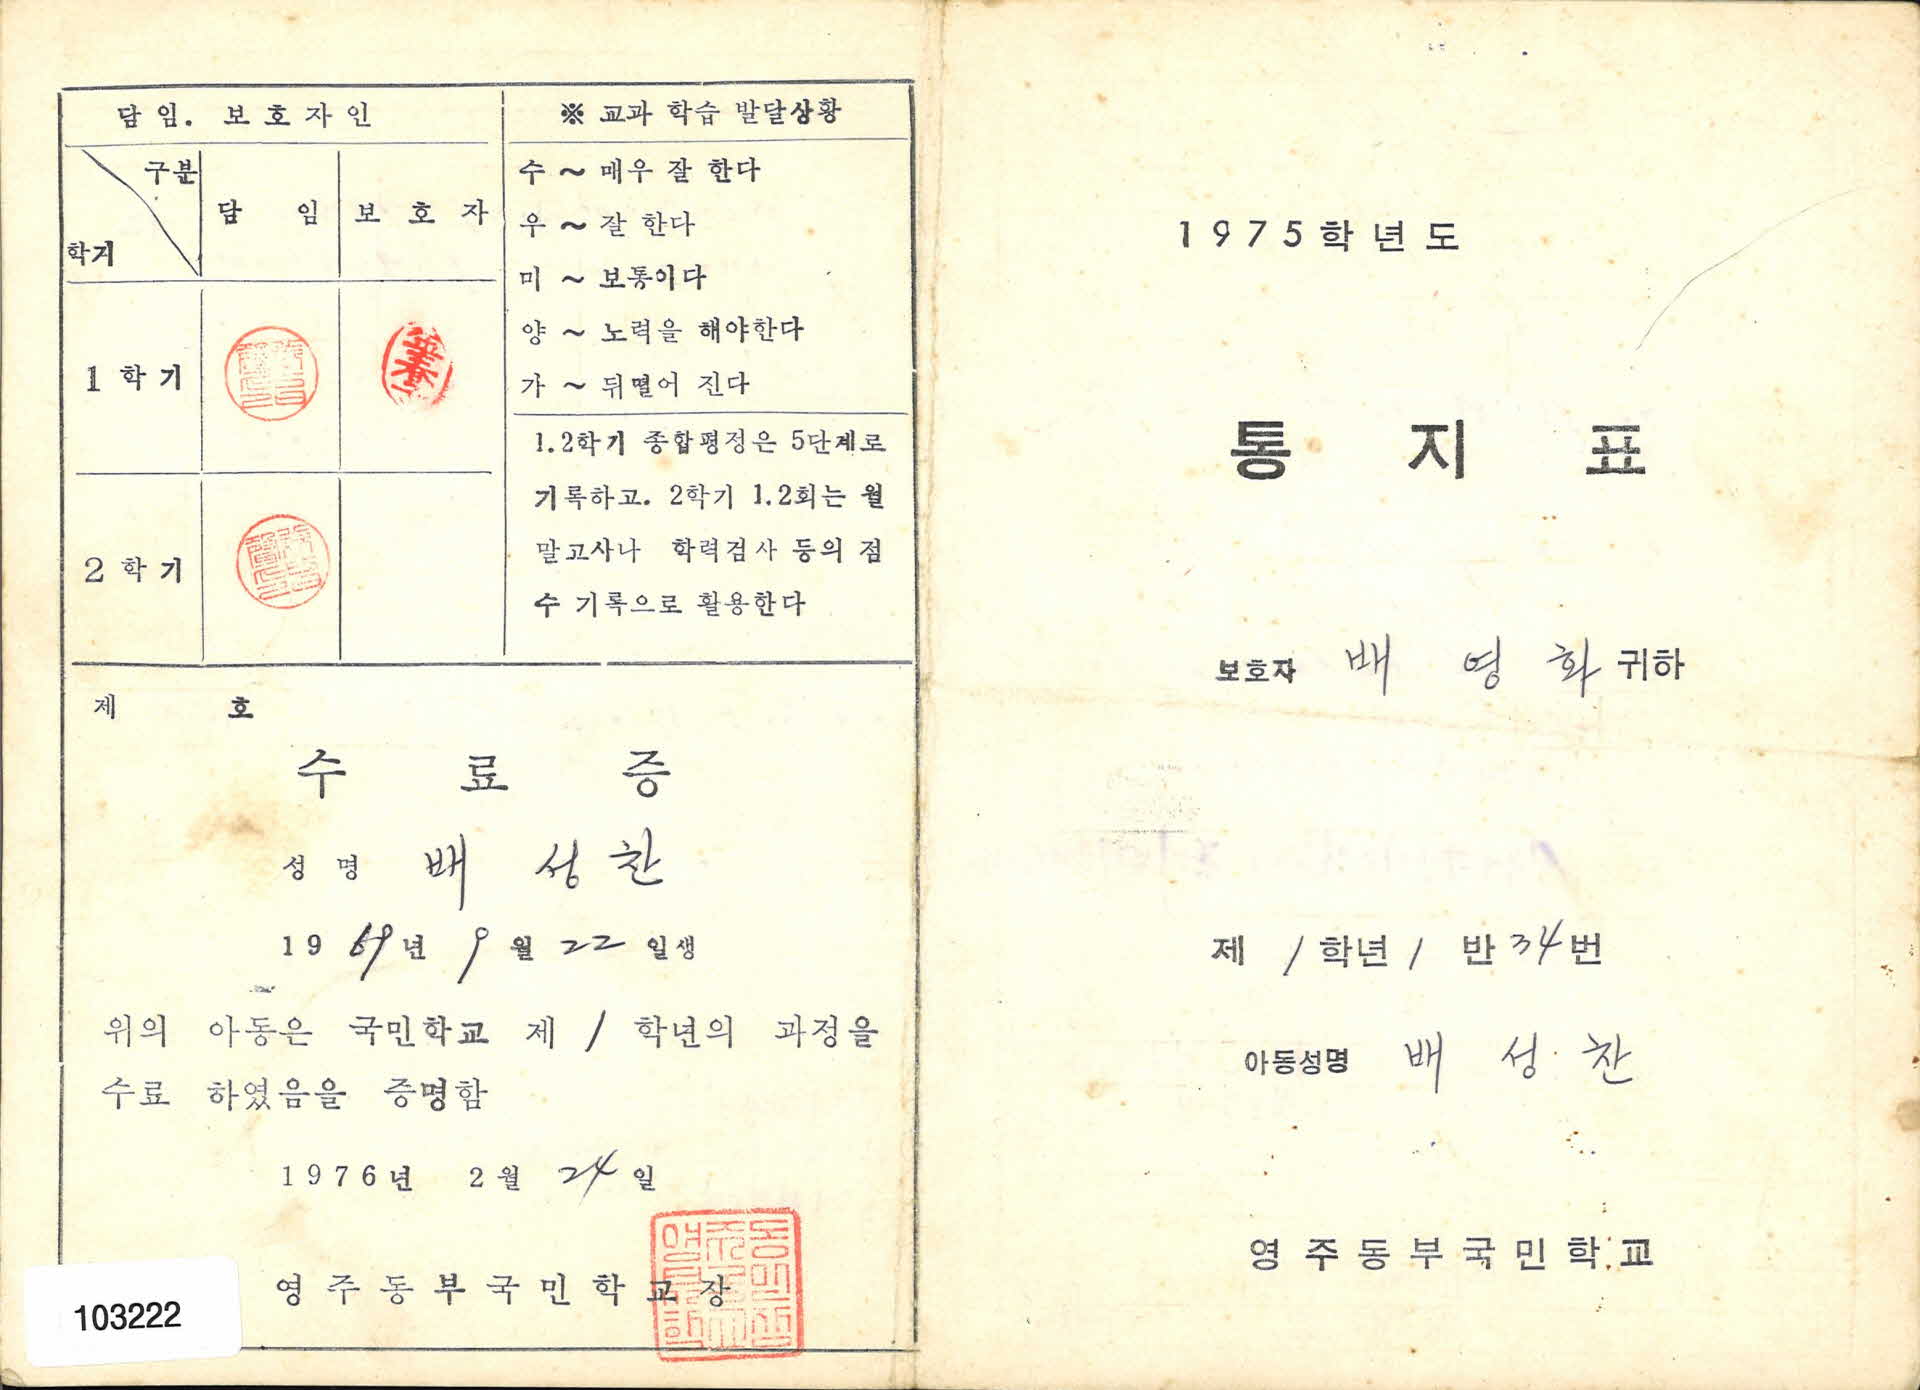 담 임. 보 호 자 인
구분
학기
담 임
보 호 자
1 학 기
2 학 기
※ 교과 학습 발달상황
수 ~ 매우 잘 한다
우 ~ 잘 한다
미 ~ 보통이다
양 ~ 노력을 해야한다
가 ~ 뒤떨어 진다
1.2학기 종합평정은 5단계로
기록하고. 2학기 1.2회는 월
말고사나 학력검사 등의 점
수 기록으로 활용한다
제 호
수 료 증
성 명 배 성 찬
19 69 년 9 월 22 일생
위의 아동은 국민학교 제 1 학년의 과정을
수료 하였음을 증명함
1976년 2월 24 일
영 주 동 부 국 민 학 교 장
103222
1975학년도
통 지 표
보호자 배 영 화 귀하
제 1 학년 1 반 34 번
아동성명 배 성 찬
영 주 동 부 국 민 학 교